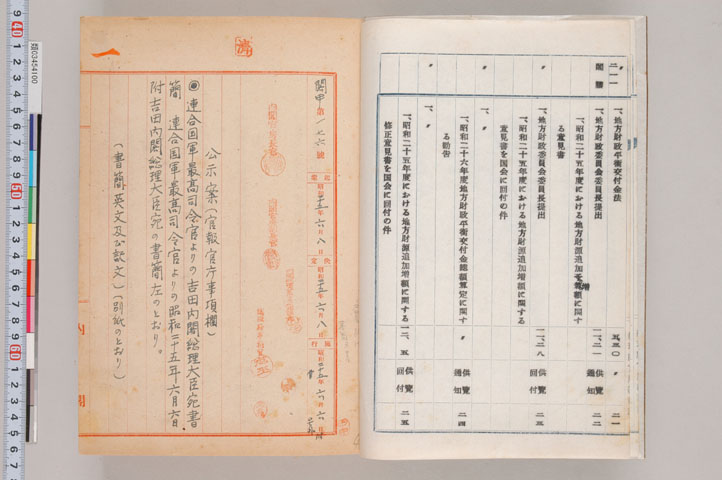 二一一
閣議
〃
〃
〃
一、地方財政平衡交付金法
五、五〇
〃
二一
一、地方財政委員会委員長提出
一、二一
供覧
通知
二二
昭和二十五年度における地方財源追加増額に関す
る意見書
一、地方財政委員会委員長提出
一、二八
供覧
回付
二三
昭和二十五年度における地方財源追加増額に関する
意見書を国会に回付の件
一、昭和二十六年度地方財政平衡交付金総額算定に関す
〃
供覧
通知
二四
る勧告
一、昭和二十五年度における地方財源追加増額に関する
一二、五
供覧
回付
二五
修正意見書を国会に回付の件
閣甲第一七六號
起案 昭和二十五年六月八日
決定 昭和二十五年六月八日
施行 昭和二十五年六月六日
公示案(官報官庁事項欄)
◎連合国軍最高司令官よりの吉田内閣総理大臣宛書
簡 連合国軍最高司令官よりの昭和二十五年六月六日
附吉田内閣総理大臣宛の書簡左のとおり。
(書簡英文及び訳文)(別紙のとおり)
一
内閣
類03454100